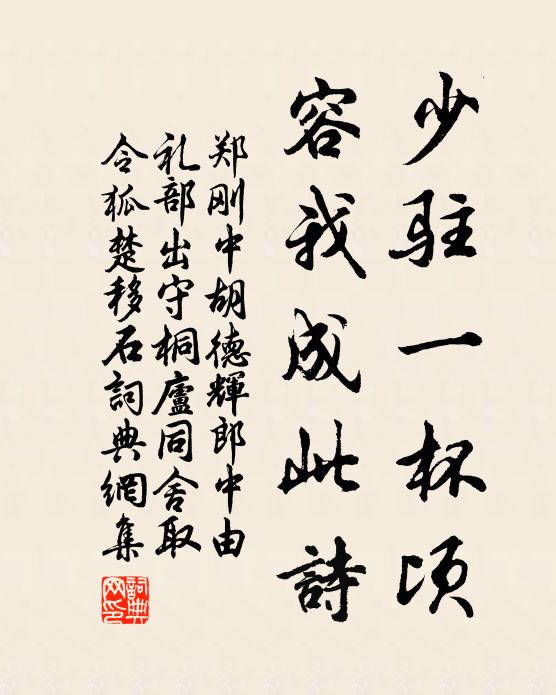 少駐一杯頃
容我成此詩
郑刚中胡德輝郎中由
礼部出守桐廬同舍取
令狐楚移石詞典網集
詞典网印